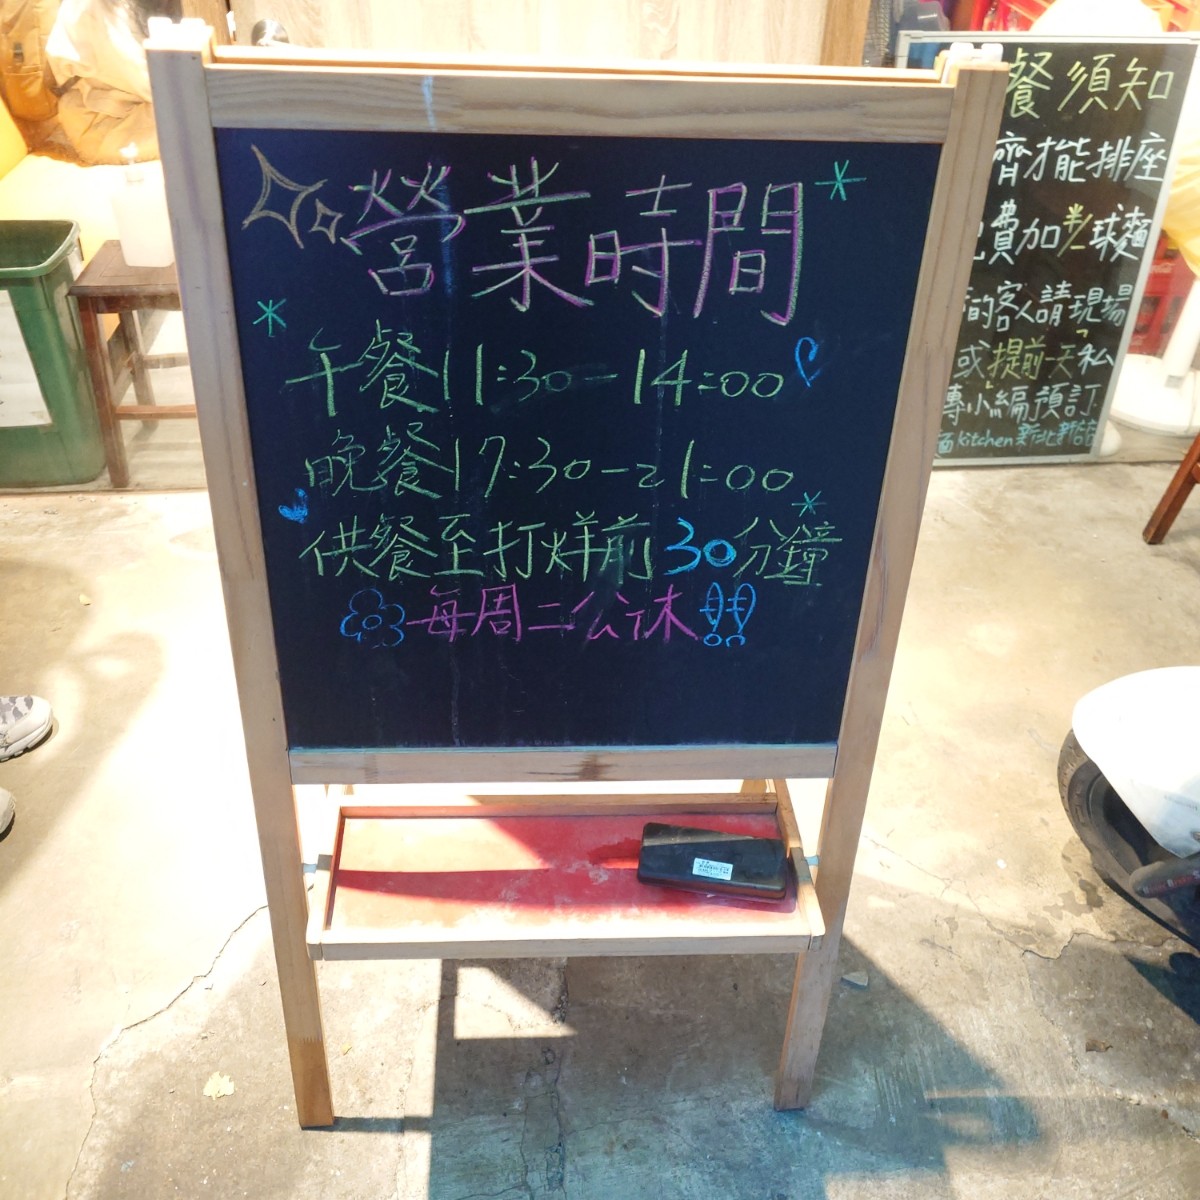 營業時間
午餐11:30-14:00
晚餐17:30-21:00
供餐至打烊前30分鐘
每周二公休!!
餐須知
齊才能排座
費加半球麵
的客人請現場
或提前一天私
小編預訂
kitchen新北新店